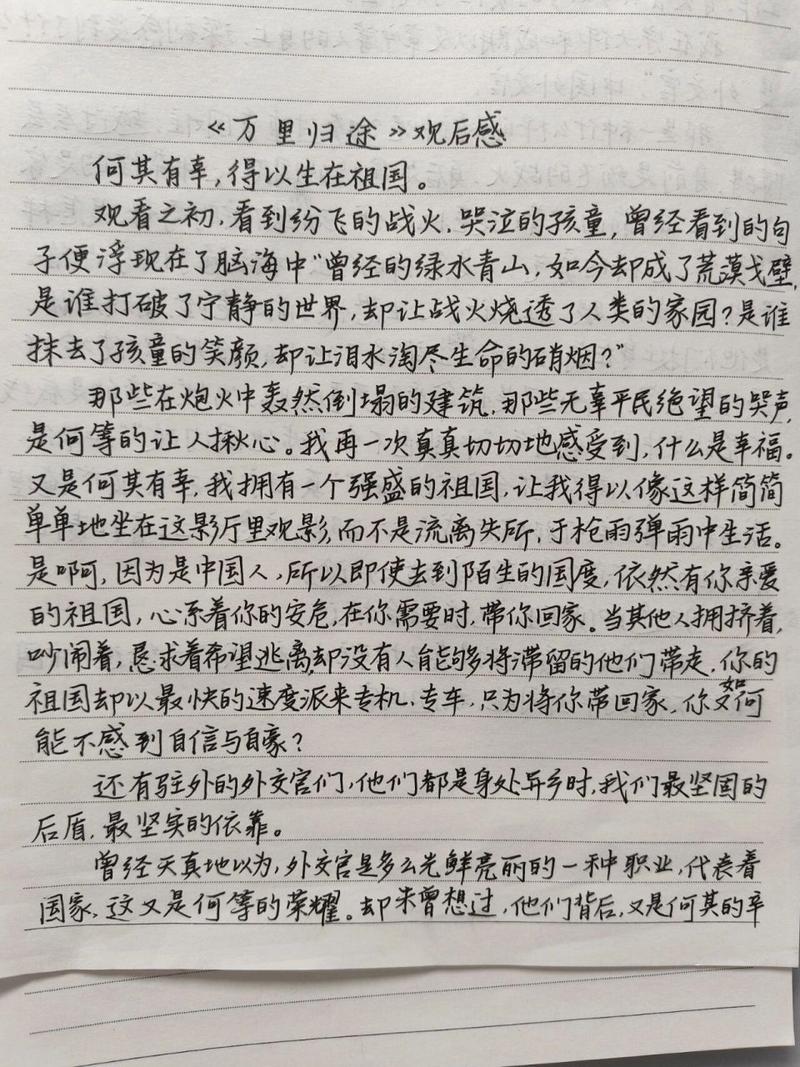 《万里归途》观后感
何其有幸,得以生在祖国。
观看之初,看到纷飞的战火、哭泣的孩童,曾经看到的句
子便浮现在了脑海中"曾经的绿水青山,如今却成了荒漠戈壁,
是谁打破了宁静的世界,却让战火烧透了人类的家园?是谁
抹去了孩童的笑颜,却让泪水淘尽生命的硝烟?"
那些在炮火中轰然倒塌的建筑,那些无辜平民绝望的哭声,
是何等的让人揪心。我再一次真真切切地感受到,什么是幸福。
又是何其有幸,我拥有一个强盛的祖国,让我得以像这样简简
单单地坐在这影厅里观影,而不是流离失所,于枪雨弹雨中生活。
是啊,因为是中国人,所以即使去到陌生的国度,依然有你亲爱
的祖国,心系着你的安危,在你需要时,带你回家。当其他人拥挤着,
吵闹着,恳求着希望逃离,却没有人能够将滞留的他们带走,你的
祖国却以最快的速度派来专机、专车,只为将你带回家,你又如何
能不感到自信与自豪?
还有驻外的外交官们,他们都是身处异乡时,我们最坚固的
后盾,最坚实的依靠。
曾经天真地以为,外交官是多么光鲜亮丽的一种职业,代表着
国家,这又是何等的荣耀。却未曾想过,他们背后,又是何其的辛